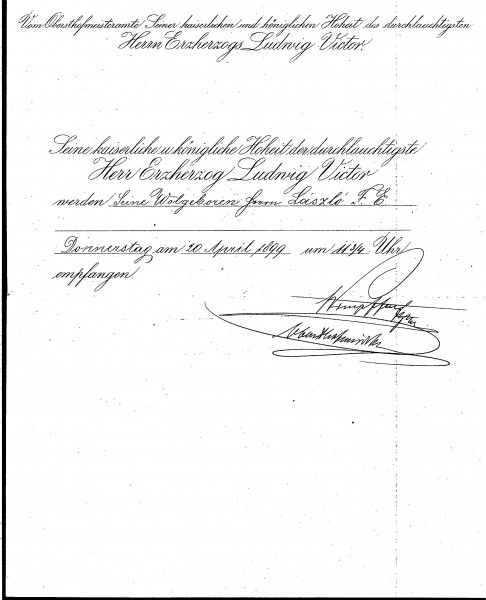 Vom Obersthofmeisteramte Seiner kaiserlichen und königlichen Hoheit des durchlauchtigsten
Herrn Erzherzogs Ludwig Victor.
Seine kaiserliche u. königliche Hoheit der durchlauchtigste
Herr Erzherzog Ludwig Victor
werden Seine Wolgeboren Herrn László F. E.
Donnerstag am 20. April 1899 um 11 3/4 Uhr
empfangen.